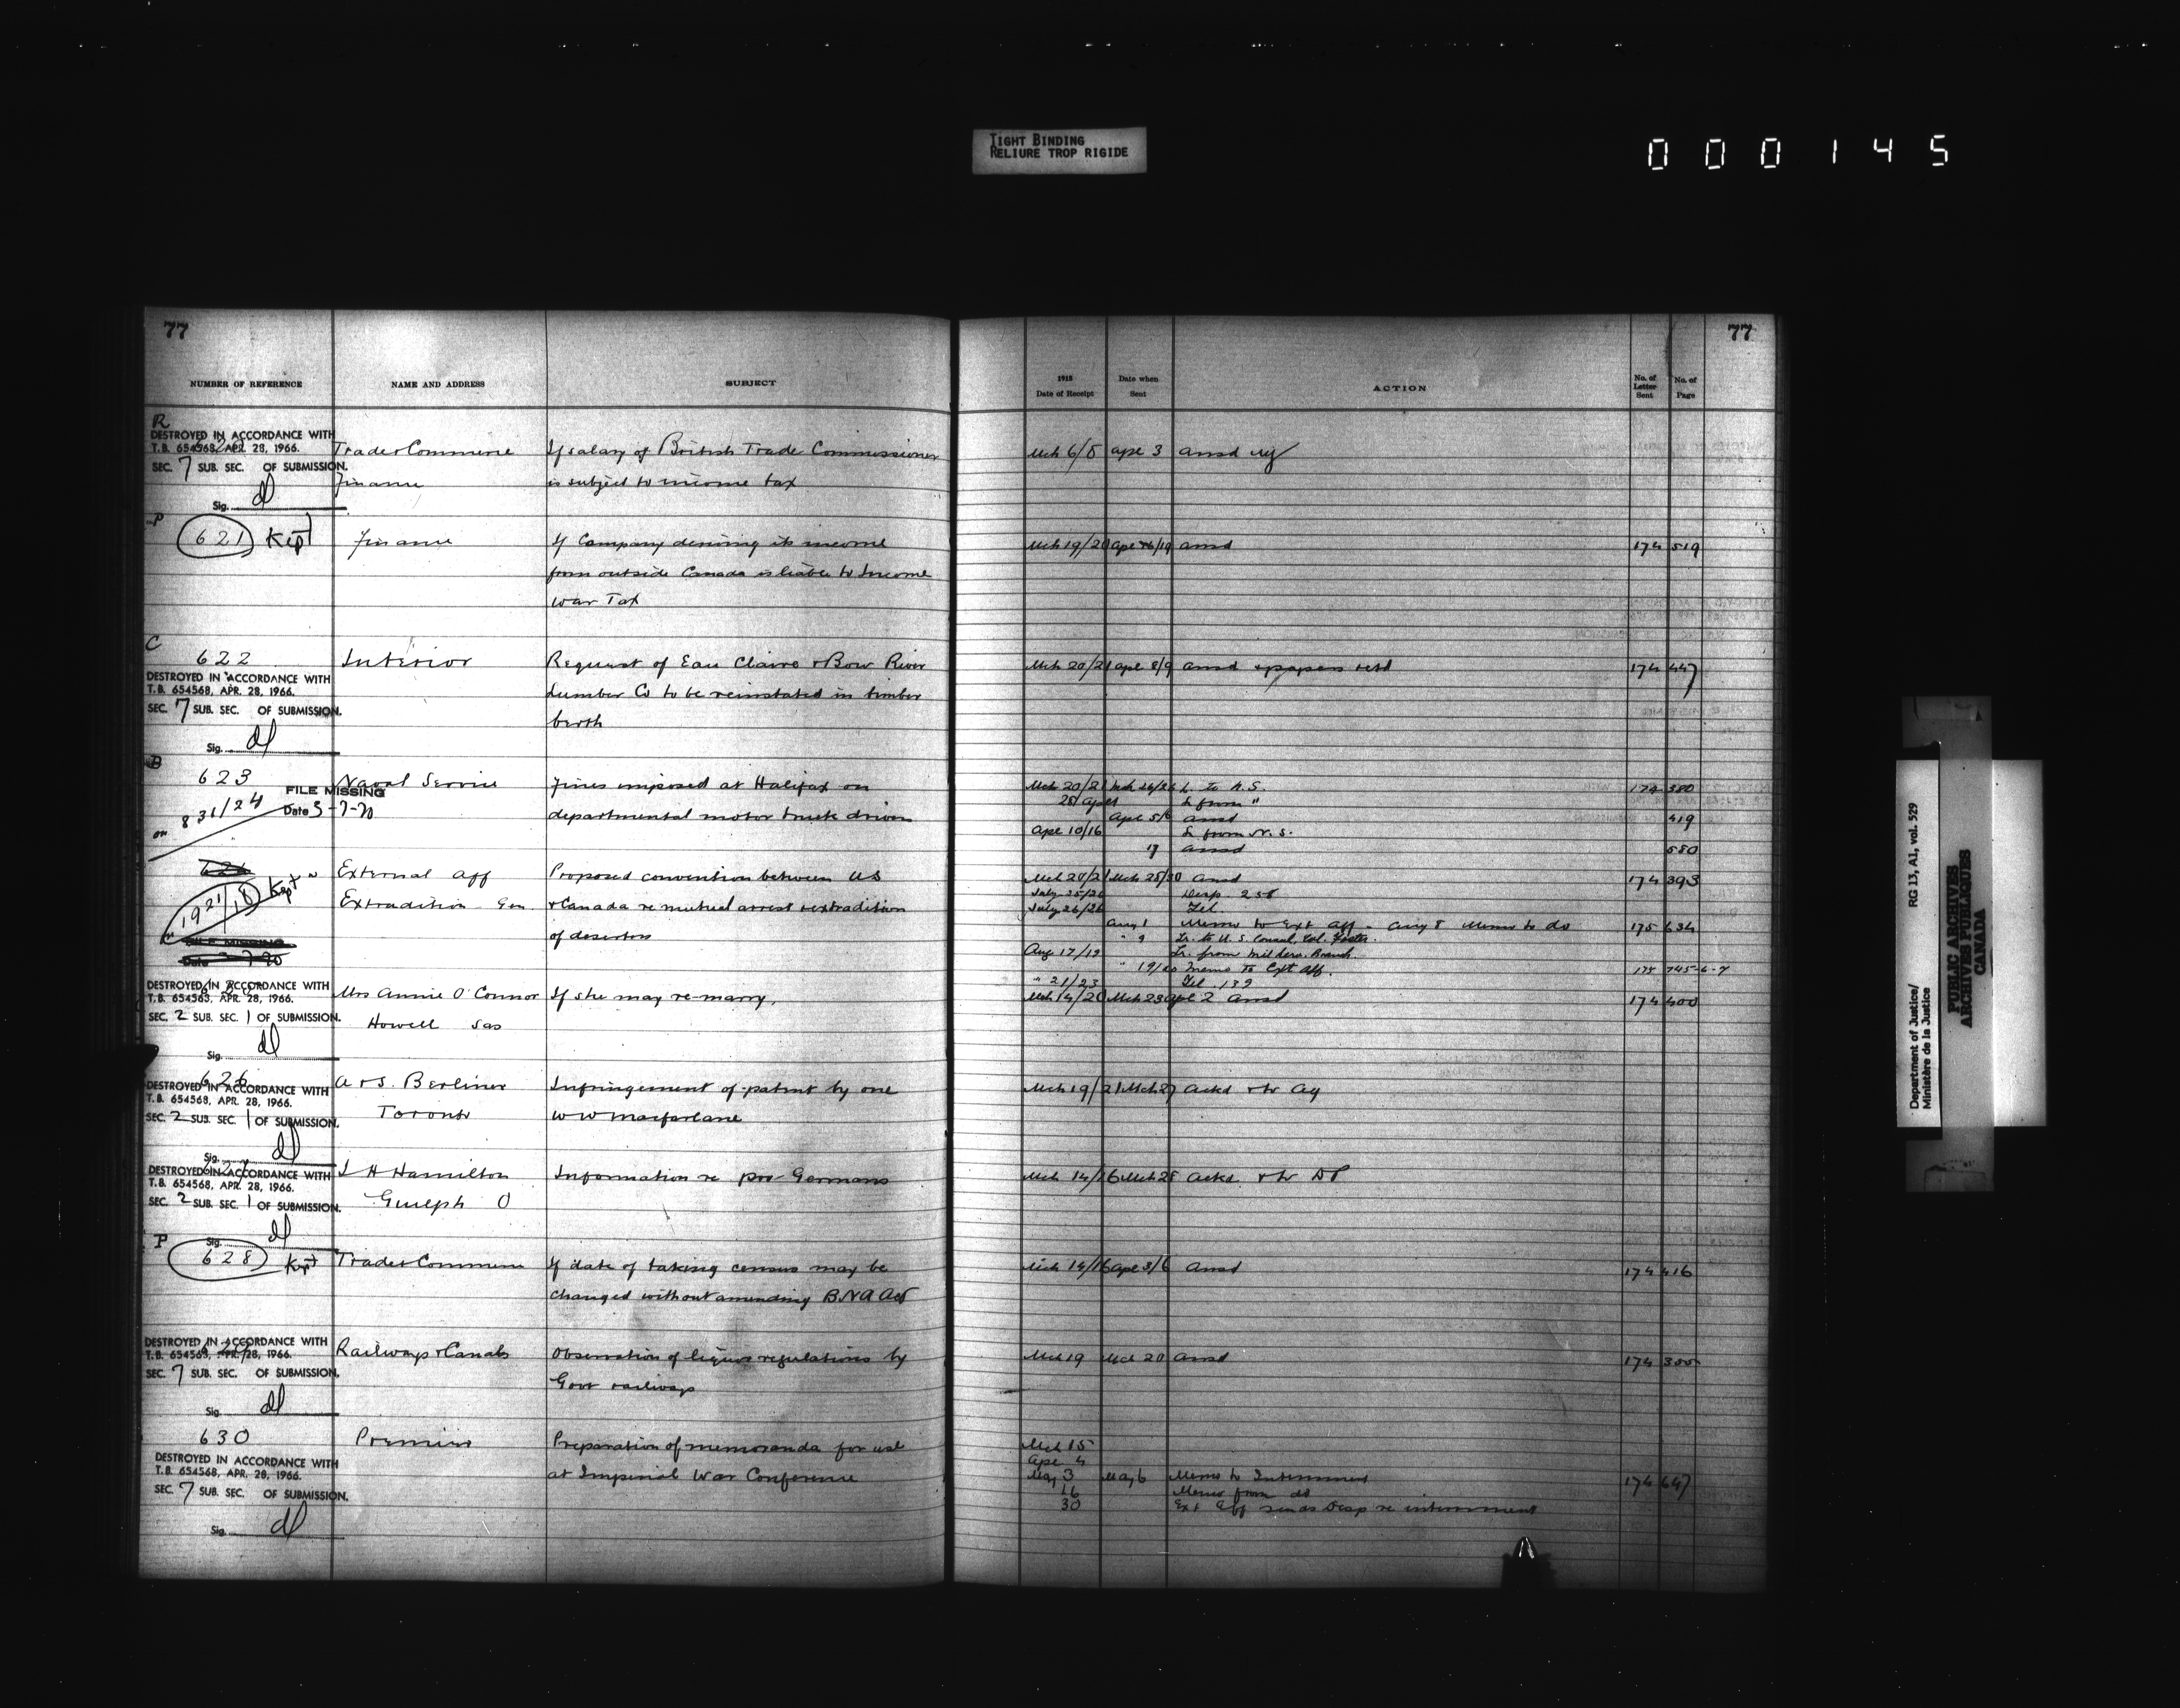 TIGHT BINDING
RELIURE TROP RIGIDE
000145
77
77
NUMBER OF REFERENCE NAME AND ADDRESS SUBJECT 1918 Date of Receipt Date when Sent ACTION No. of Letter Sent No. of Page
R
DESTROYED IN ACCORDANCE WITH
T.B. 654568, APR. 28, 1966.
SEC. 7 SUB. SEC. OF SUBMISSION.
Sig. dl
Trade & Commerce If salary of British Trade Commissioner Mch 6/8 Apl 3 Ansd
Finance is subject to income tax
P
621 Kept Finance If Company deriving its income Mch 19/20 Ansd 174 519
from outside Canada is liable to Income
War Tax
C
622 Interior Request of Eau Claire & Bow River Mch 20/21 Apl 8/9 Ansd & papers retd 174 447
DESTROYED IN ACCORDANCE WITH
T.B. 654568, APR. 28, 1966.
SEC. 7 SUB. SEC. OF SUBMISSION.
Sig. dl
Lumber Co to be reinstated in timber
berth
B
623 Naval Service Fines imposed at Halifax on Mch 20/21 L to N.S. 174 380
FILE MISSING
Date 3-7-70
on 831/24
departmental motor truck driver L from "
Apl 5/6 Ansd 419
Apl 10/16 L from N.S.
17 Ansd 580
External Aff Proposed convention between US Mch 20/21 Mch 28/30 Ansd 174 393
1921/18 Kept
Extradition Gen & Canada re mutual arrest & extradition July 25/26 Desp. 258
of deserters July 26/26 Tel.
Aug 1 Memo to Ext Aff - Aug 8 Memo to do 175 634
" 9 Lr. to U.S. Consul. Gen. Foster.
Aug 17/19 Lr. from Mil Serv. Branch.
" 19/20 Memo to Ext Aff. 745-6-7
" 21/23 Tel. 139
DESTROYED IN ACCORDANCE WITH
T.B. 654568, APR. 28, 1966.
SEC. 2 SUB. SEC. 1 OF SUBMISSION.
Sig. dl
Mrs Annie O'Connor If she may re-marry. Mch 14/20 Apl 2 Ansd 174 400
Howell Sas
626
DESTROYED IN ACCORDANCE WITH
T.B. 654568, APR. 28, 1966.
SEC. 2 SUB. SEC. 1 OF SUBMISSION.
Sig. dl
A & S. Berliner Infringement of patent by one Mch 19/21 Mch 27 Ackd & tr Ag
Toronto W W Macfarlane
627
DESTROYED IN ACCORDANCE WITH
T.B. 654568, APR. 28, 1966.
SEC. 2 SUB. SEC. 1 OF SUBMISSION.
Sig. dl
J H Hamilton Information re pro Germans Mch 14/16 Mch 28 Ackd & tr DP
Guelph O
P
628 Kept Trade & Commerce If date of taking census may be Mch 14/16 Apl 3/6 Ansd 174 416
changed without amending B.N.A Act
DESTROYED IN ACCORDANCE WITH
T.B. 654568, APR. 28, 1966.
SEC. 7 SUB. SEC. OF SUBMISSION.
Sig. dl
Railways & Canals Observation of liquor regulations by Mch 19 Mch 20 Ansd 174 355
Govt railways
630 Premier Preparation of memoranda for use Mch 15
DESTROYED IN ACCORDANCE WITH
T.B. 654568, APR. 28, 1966.
SEC. 7 SUB. SEC. OF SUBMISSION.
Sig. dl
Apl 4
at Imperial War Conference May 3 May 6 Memo to Internment 174 647
16 Memo from do
30 Ext Aff sends Desp re internment
Department of Justice/
Ministère de la Justice
RG 13, A1, vol. 529
PUBLIC ARCHIVES
ARCHIVES PUBLIQUES
CANADA